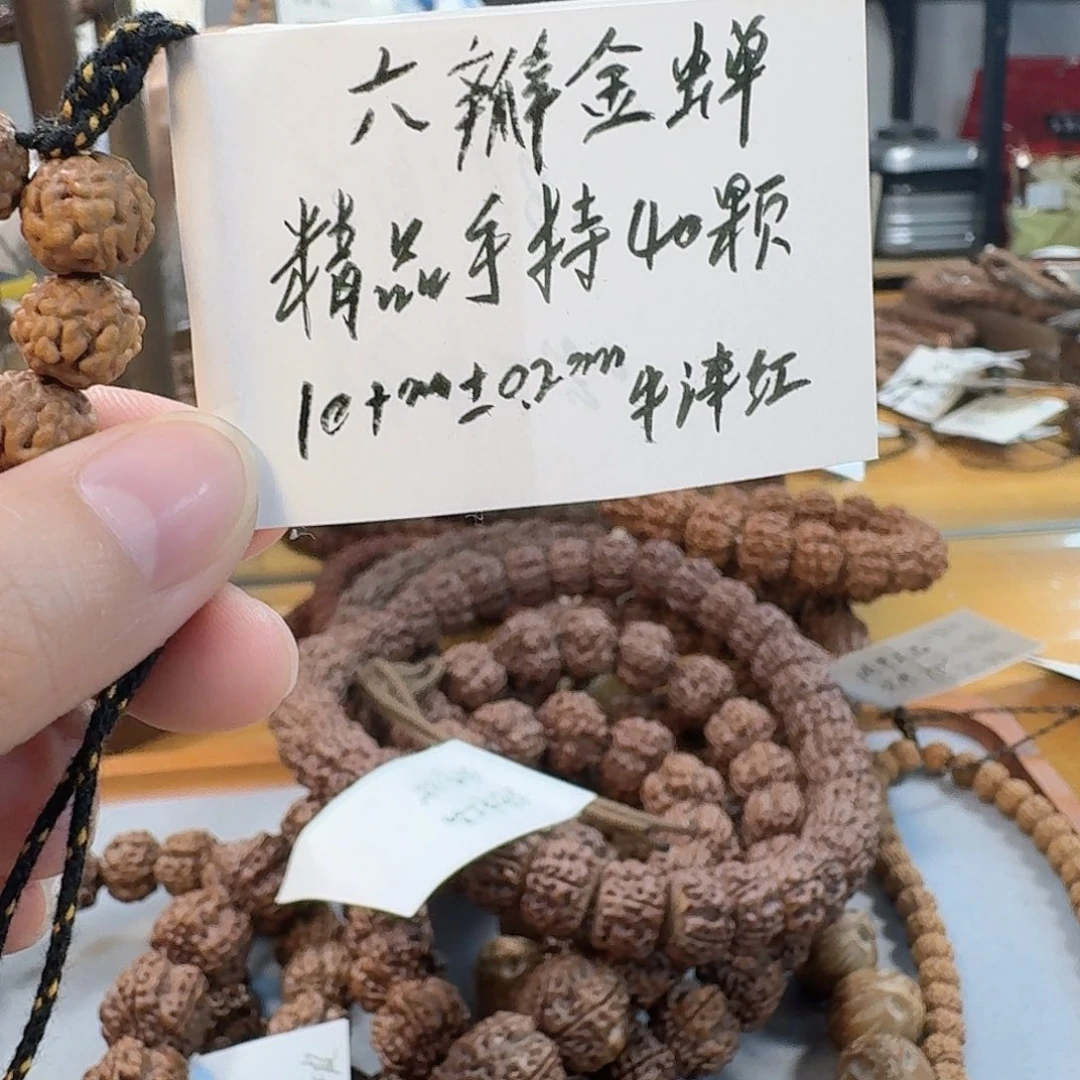 六瓣金蝉
精品手持40颗
10+mm±0.2mm 牛津红